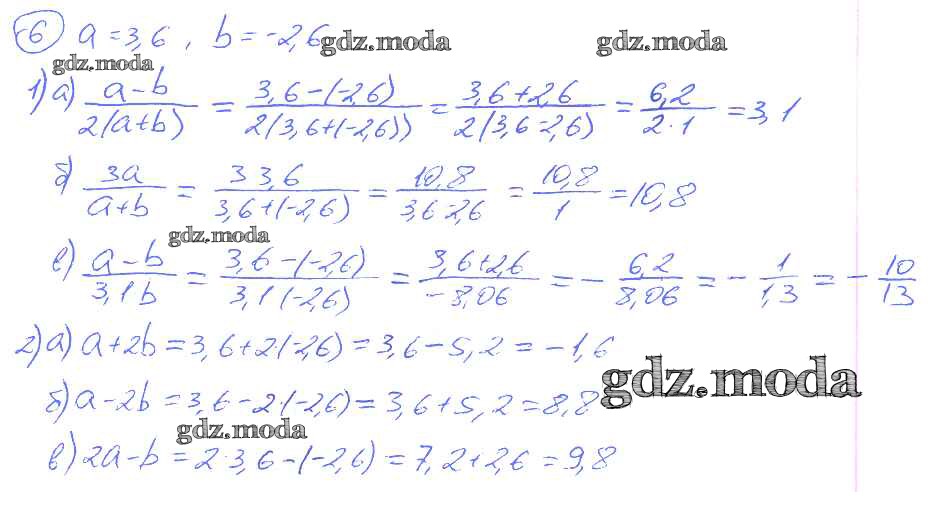 6 a = 3,6 , b = -2,6
gdz.moda gdz.moda
gdz.moda
1) а) (a-b)/(2(a+b)) = (3,6-(-2,6))/(2(3,6+(-2,6))) = (3,6+2,6)/(2(3,6-2,6)) = 6,2/(2·1) = 3,1
б) 3a/(a+b) = (3·3,6)/(3,6+(-2,6)) = 10,8/(3,6-2,6) = 10,8/1 = 10,8
gdz.moda
в) (a-b)/(3,1b) = (3,6-(-2,6))/(3,1(-2,6)) = (3,6+2,6)/(-8,06) = -6,2/8,06 = -1/1,3 = -10/13
2) а) a+2b = 3,6+2·(-2,6) = 3,6-5,2 = -1,6
gdz.moda
б) a-2b = 3,6-2·(-2,6) = 3,6+5,2 = 8,8
gdz.moda
в) 2a-b = 2·3,6-(-2,6) = 7,2+2,6 = 9,8